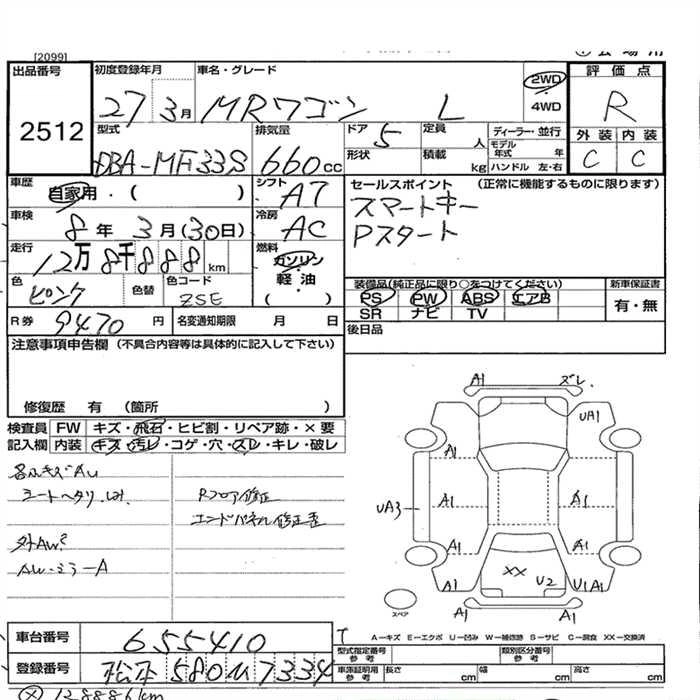 [2099]
出品番号 2512
初度登録年月 27 3月
車名・グレード MRワゴン L
2WD
4WD
評価点 R
外装 内装
C C
型式 DBA-MF33S
排気量 660cc
ドア 5
形状
定員 人
積載 kg
ディーラー・並行
モデル年式 年
ハンドル 左・右
車歴 自家用・( )
シフト A7
セールスポイント (正常に機能するものに限ります)
スマートキー
Pスタート
車検 8年 3月(30日)
冷房 AC
走行 12万8千888km
燃料 ガソリン
軽油
( )
色 ピンク 色替
色コード ZSE
装備品(純正品に限り○をつけてください)
PS PW ABS エアB
SR ナビ TV
新車保証書
有・無
R券 9470円
名変通知期限 月 日
後日品
注意事項申告欄(不具合内容等は具体的に記入して下さい)
修復歴 有 (箇所 )
検査員記入欄
FW キズ・飛石・ヒビ割・リペア跡・×要
内装 キズ・汚レ・コゲ・穴・スレ・キレ・破レ
各所キズAU
シートヘタリ
Rフロア修正
エンドパネル修正歪
外AW
AW・ミラーA
A1 ズレ.
UA1
A1
A1 A1
UA3
A1 A1
A1 XX U2 U1 A1
A1 A1
スペア
A-キズ E-エクボ U-凹み W-補修跡 S-サビ C-腐食 XX-交換済
車台番号 655410
型式指定番号 参考
類別区分番号 参考
登録番号 松本 580 ム 7334
車庫証明用 参考 長さ cm 幅 cm 高さ cm
128886km